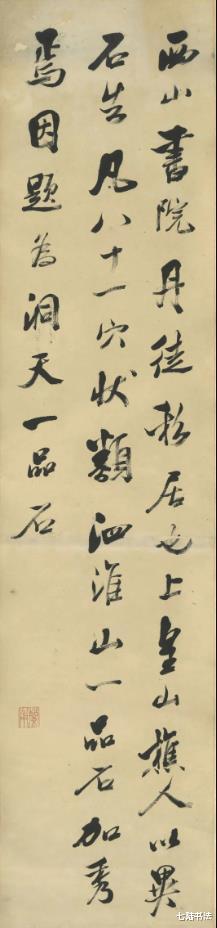 西山書院丹徒私居也上皇山樵人以異
石告凡八十一穴狀類泗淮山一品石加秀
焉因題為洞天一品石
七陆书法